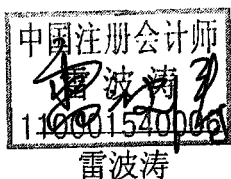 中国注册会计师
雷波涛
110001540006
雷波涛